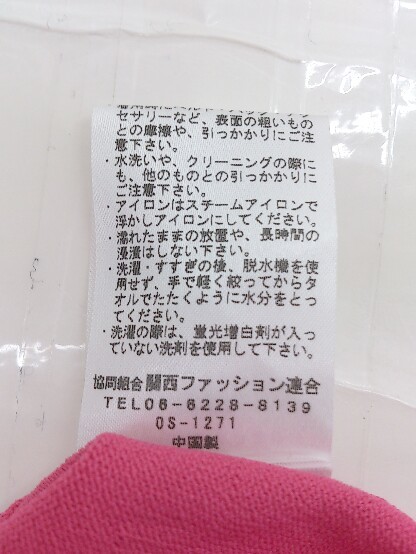 セサリーなど、表面の粗いもの
との摩擦や、引っかかりにご注
意下さい。
・水洗いや、クリーニングの際に
も、他のものとの引っかかりに
ご注意下さい。
・アイロンはスチームアイロンで
浮かしアイロンにしてください。
・濡れたままの放置や、長時間の
浸漬はしない下さい。
・洗濯・すすぎの後、脱水機を使
用せず、手で軽く絞ってからタ
オルでたたくように水分をとっ
てください。
・洗濯の際は、蛍光増白剤が入っ
ていない洗剤を使用して下さい。
協同組合関西ファッション連合
TEL06-6228-8139
OS-1271
中国製